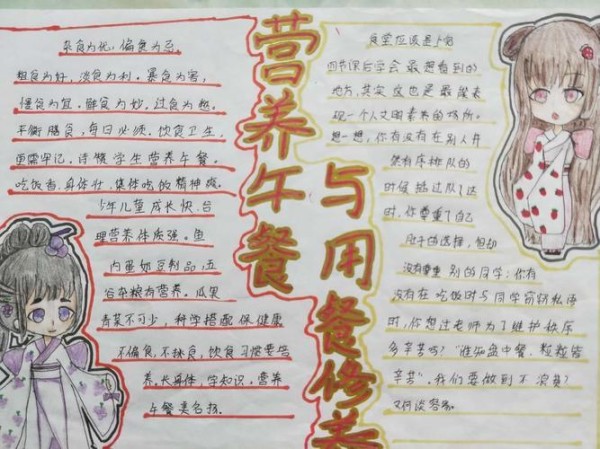 营养午餐
与用餐修养
杂食为优,偏食为忌,
粗食为好,淡食为利。暴食为害,
慢食为宜。鲜食为妙,过食为
平衡膳食,每日必须。饮食卫生,
更需牢记。诗情学生营养午餐。
吃饭香,身体壮,集体吃饭精神爽
少年儿童成长快,合
理营养体质强。鱼
肉蛋奶豆制品,五
谷杂粮有营养。瓜果
青菜不可少,科学搭配保健康
不偏食,不挑食,饮食习惯要培
养。长身体,学知识。营养
午餐美名扬。
食堂应该是
四节课后学会最想看到的
地方,其实这也是最能表
现一个人文明素养的场所。
想一想,你有没有在别人井
然有序排队的
时候插过队?这
时,你尊重了自己
肚子的选择,但却
没有尊重别的同学:你有
没有在吃饭时与同学窃窃私语
时,你想过老师为了维护秩序
多辛苦吗?“谁知盘中餐,粒粒皆
辛苦”,我们要做到不浪费?
又何谈容易。